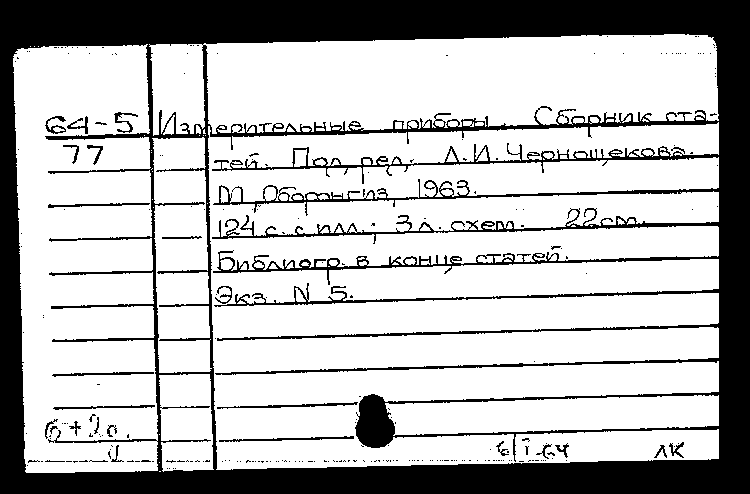 64-5 Измерительные приборы. Сборник ста-
77 тей. Под ред. Л.И. Чернощекова.
М, Оборонгиз, 1963.
124 с. с илл.; 3 л. схем. 22 см.
Библиогр. в конце статей.
Экз. N 5.
6/I-64 ЛК